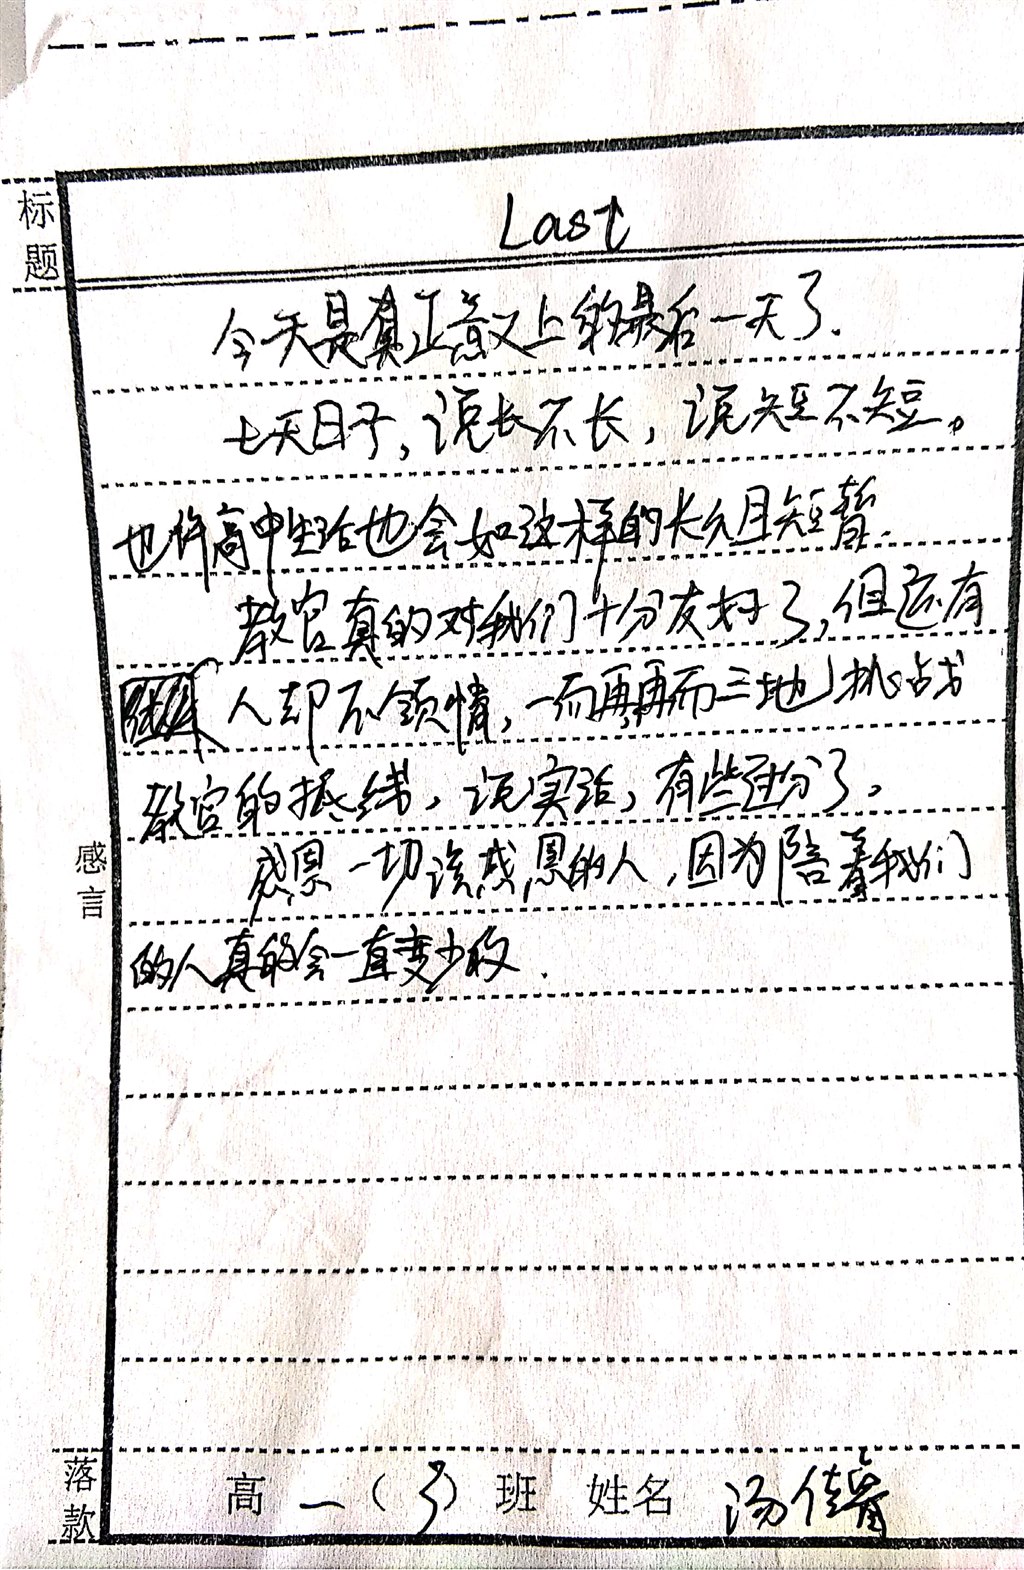 标题
Last
今天是真正意义上的最后一天了.
七天日子,说长不长,说短不短。
也许高中生活也会如这样的长久且短暂.
教官真的对我们十分友好了,但还有
人却不领情,一而再,再而三地挑战
教官的底线,说实话,有些过分了。
感言
感恩一切该感恩的人,因为陪着我们
的人真的会一直变少的.
落款
高一(3)班 姓名 汤佳